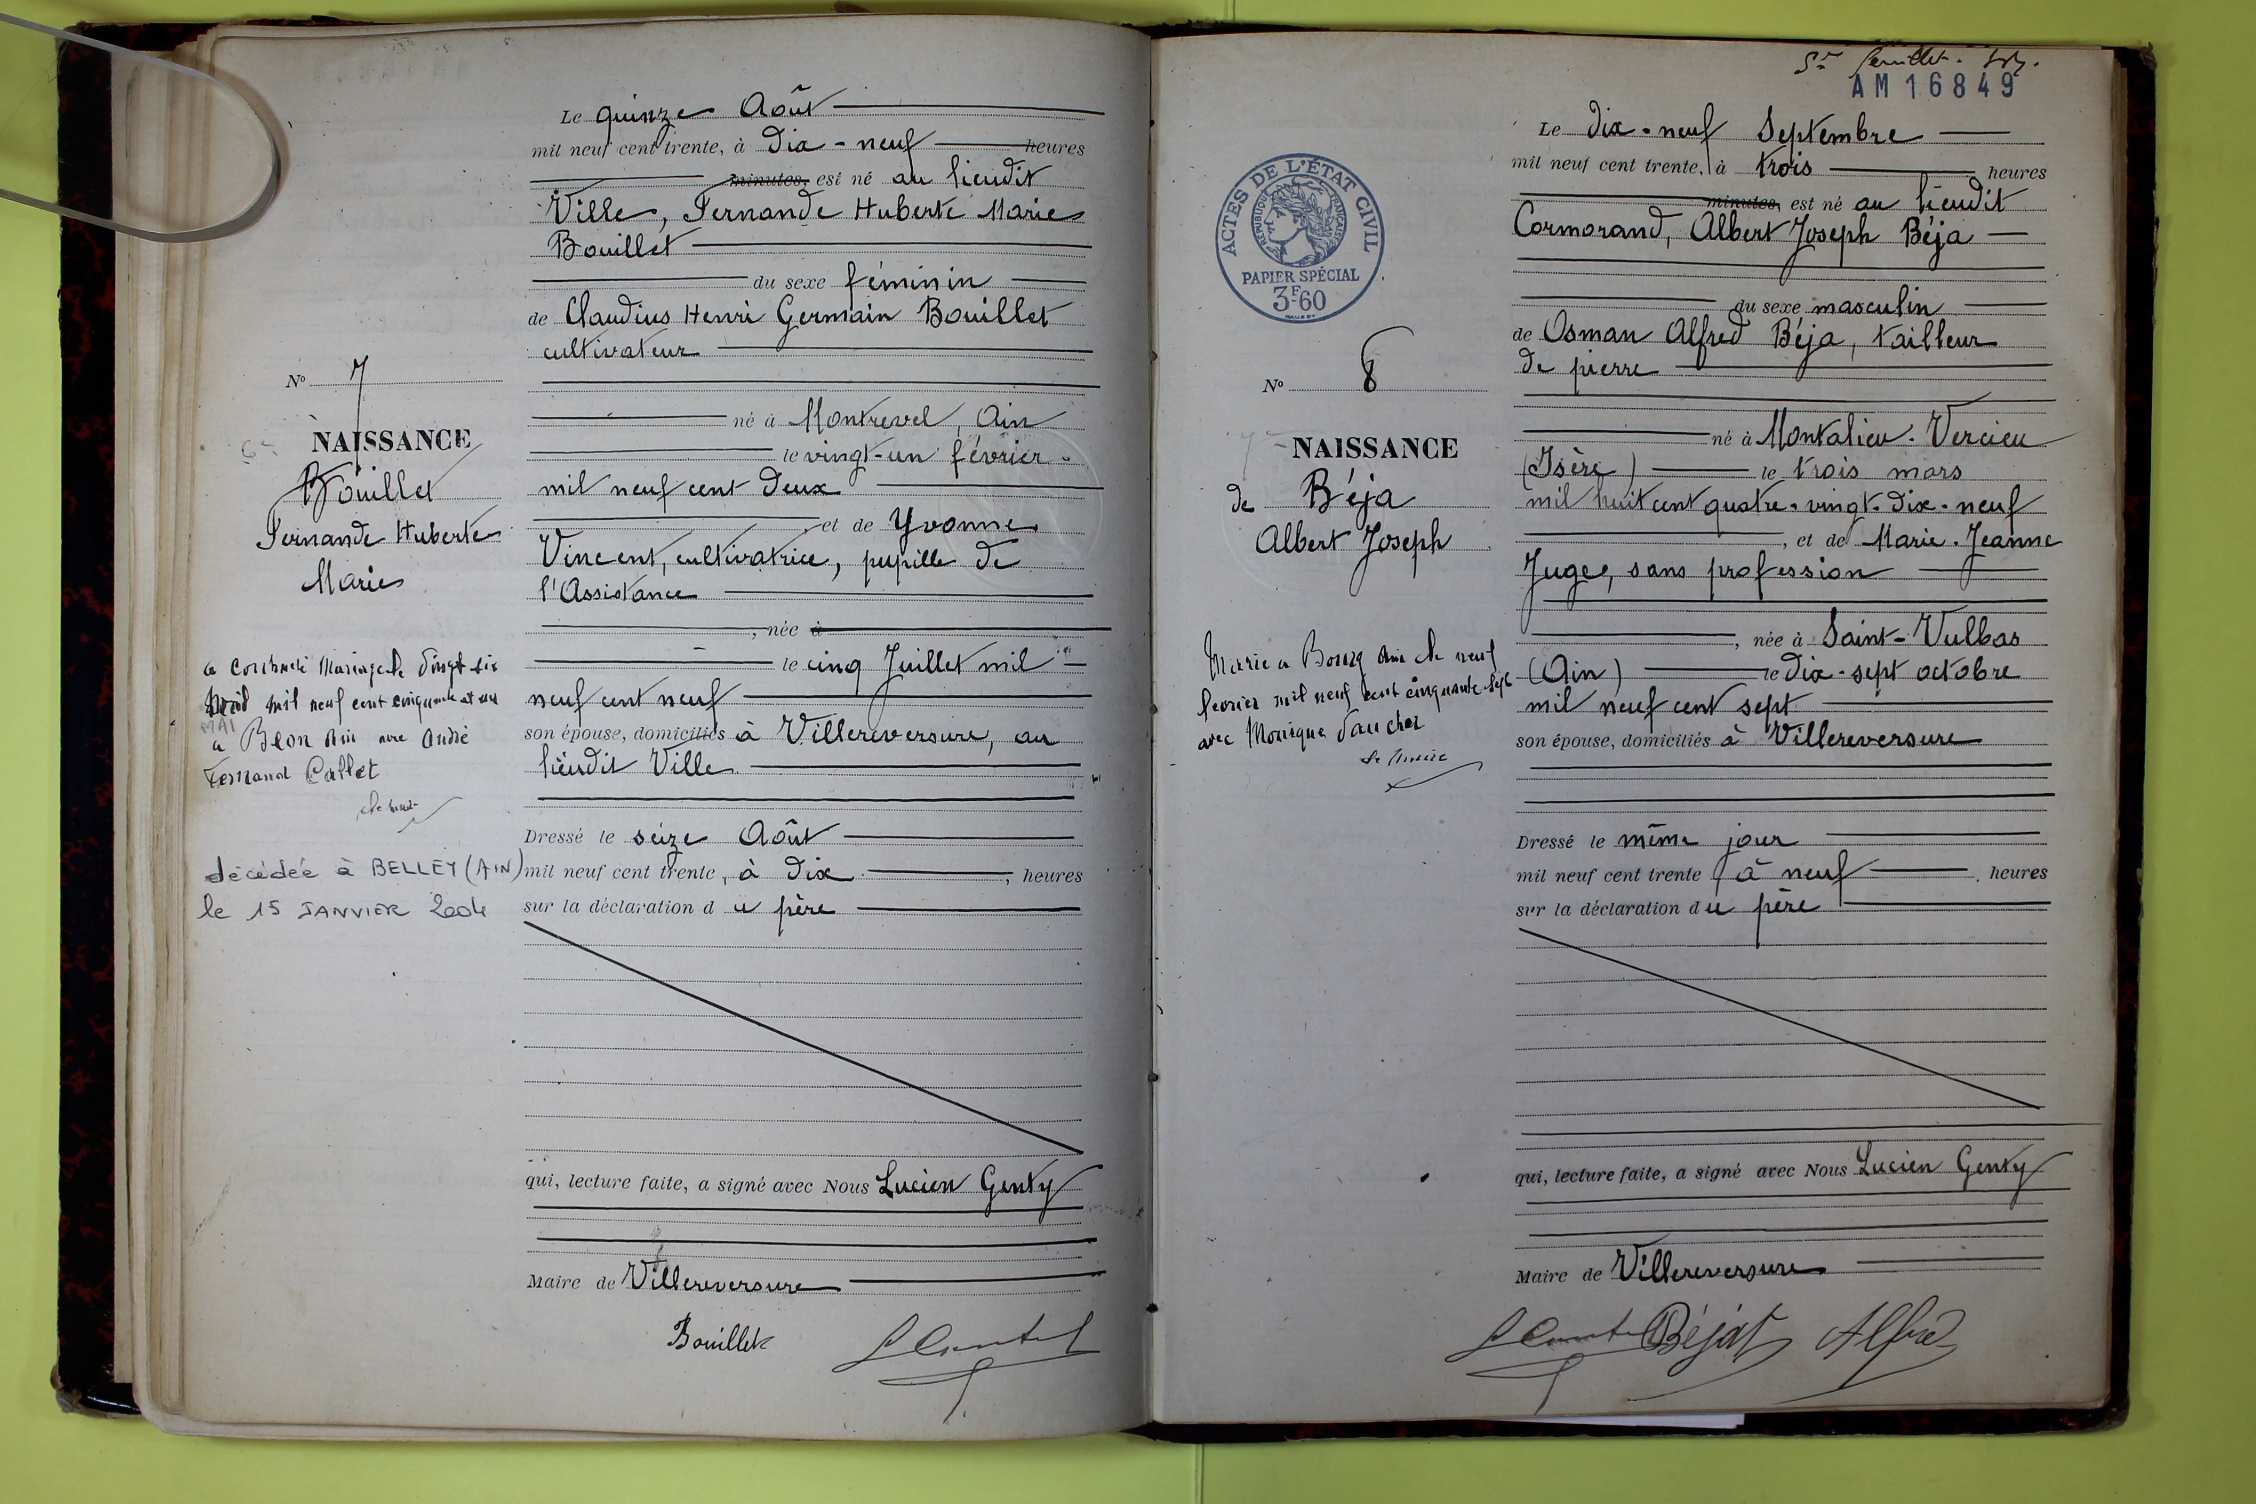 Le quinze Août
mil neuf cent trente, à Dix-neuf heures
minutes, est né au lieudit
Ville, Fernande Huberte Marie
Bouillet
du sexe féminin
de Claudius Henri Germain Bouillet
cultivateur
né à Montrevel, Ain
le vingt-un février
mil neuf cent deux
et de Yvonne
Vincent, cultivatrice, pupille de
l'Assistance
, née à
le cinq Juillet mil
neuf cent neuf
son épouse, domiciliés à Villereversure, au
lieudit Ville
Dressé le seize Août
mil neuf cent trente, à Dix, heures
sur la déclaration du père
qui, lecture faite, a signé avec Nous Lucien Genty
Maire de Villereversure
Bouillet
No 7
NAISSANCE
Bouillet
Fernande Huberte
Marie
a contracté Mariage le vingt six
mil neuf cent cinquante et un
MAI
a Béon Ain avec André
Fernand Callet
décédée à BELLEY (AIN)
le 15 JANVIER 2004
AM 16849
ACTES DE L'ÉTAT CIVIL
RÉPUBLIQUE FRANÇAISE
PAPIER SPÉCIAL
3F60
No 8
NAISSANCE
de Béja
Albert Joseph
Marié a Bourg Ain le neuf
fevrier mil neuf cent cinquante sept
avec Monique Faucher
Le Maire
Le Dix-neuf Septembre
mil neuf cent trente, à trois heures
minutes, est né au lieudit
Cormorand, Albert Joseph Béja
du sexe masculin
de Osman Alfred Béja, tailleur
de pierre
né à Montalieu-Vercieu
(Isère) le trois mars
mil huit cent quatre-vingt-dix-neuf
, et de Marie-Jeanne
Juge, sans profession
, née à Saint-Vulbas
(Ain) le Dix-sept octobre
mil neuf cent sept
son épouse, domiciliés à Villereversure
Dressé le même jour
mil neuf cent trente, à neuf, heures
sur la déclaration du père
qui, lecture faite, a signé avec Nous Lucien Genty
Maire de Villereversure
Béjat Alfred